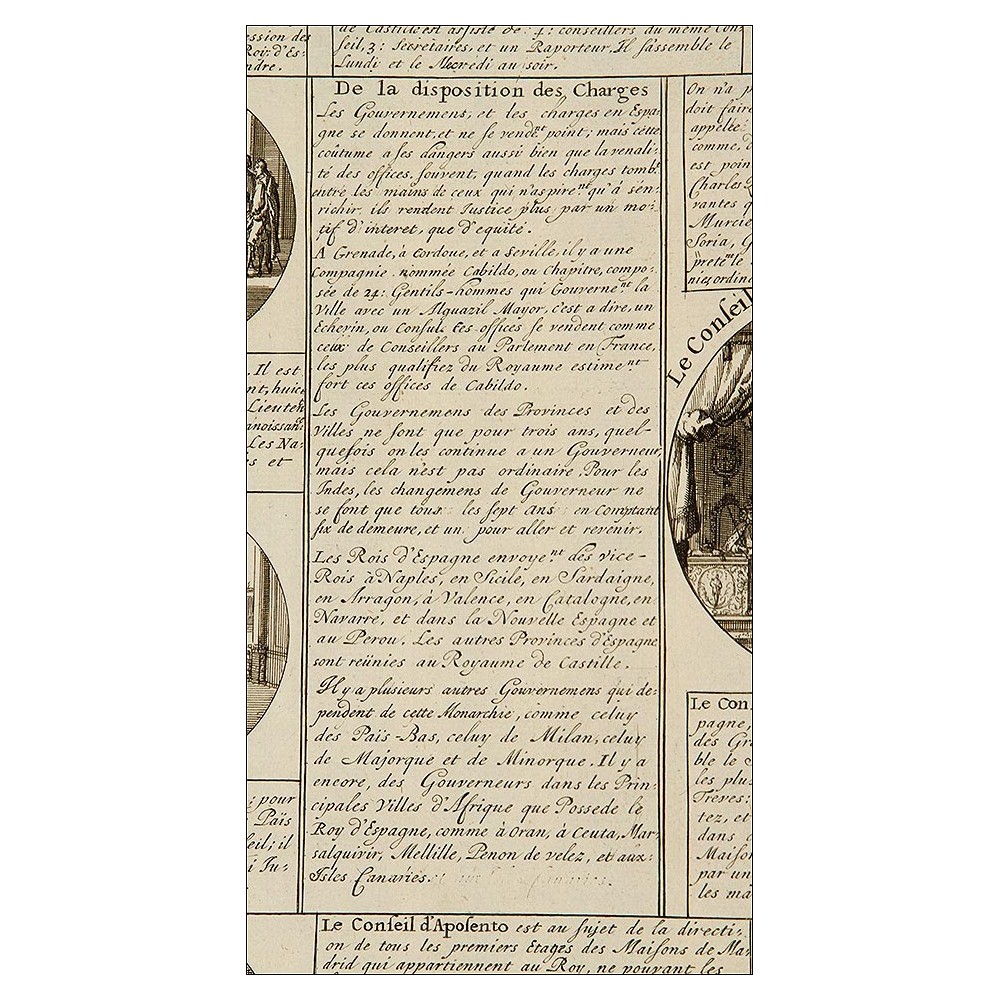 de Castille est assisté de : 4 : conseillers du même Con-
seil, 3 : Secretaires, et un Raporteur. Il s'assemble le
Lundi et le Mecredi au soir.
ssion des
Roy. d'Es-
ndre.
De la disposition des Charges
Les Gouvernemens, et les charges en Espa-
gne se donnent, et ne se vendent point; mais cette
coûtume a ses dangers aussi bien que la venali-
té des offices. souvent, quand les charges tombt
entre les mains de ceux qui n'aspirent qu'à s'en-
richir, ils rendent Justice plus par un mo-
tif d'interet, que d'equité.
A Grenade, à Cordoue, et a Seville, il y a une
Compagnie nommée Cabildo, ou Chapitre, compo-
sée de 24 : Gentils-hommes qui Gouvernent la
Ville avec un Alguazil Mayor, c'est a dire, un
Echevin, ou Consul. Ces offices se vendent comme
ceux de Conseillers au Parlement en France,
les plus qualifiez du Royaume estiment
fort ces offices de Cabildo.
Les Gouvernemens des Provinces et des
Villes ne sont que pour trois ans, quel-
quefois on les continue a un Gouverneur,
mais cela n'est pas ordinaire. Pour les
Indes, les changemens de Gouverneur ne
se font que tous les sept ans en comptant
six de demeure, et un pour aller et revenir.
Les Rois d'Espagne envoyent des vice-
Rois à Naples, en Sicile, en Sardaigne,
en Arragon, à Valence, en Catalogne, en
Navarre, et dans la Nouvelle Espagne et
au Perou. Les autres Provinces d'Espagne
sont reünies au Royaume de Castille.
Il y a plusieurs autres Gouvernemens qui de-
pendent de cette Monarchie, comme celuy
des Païs-Bas, celuy de Milan, celuy
de Majorque et de Minorque. Il y a
encore, des Gouverneurs dans les Prin-
cipales Villes d'Afrique que Possede le
Roy d'Espagne, comme à Oran, à Ceuta, Mar-
salquivir, Mellille, Penon de velez, et aux
Isles Canaries.
Il est
nt, huict
Lieuten
anoissan-
Les Na-
s et
; pour
Païs
seil; il
i Ju-
On n'a p
doit faire
appelée
comme, d
est poin
Charles
vantes q
Murcie
Soria, G
prétent le
nier, ordin
Le Conseil
Le Con
pagne,
des Gr
ble le S
les plu
Treves:
tez, et
dans
Maison
par un
les ma
Le Conseil d'Aposento est au sujet de la directi-
on de tous les premiers Etages des Maisons de Ma-
drid qui appartiennent au Roy, ne pouvant les